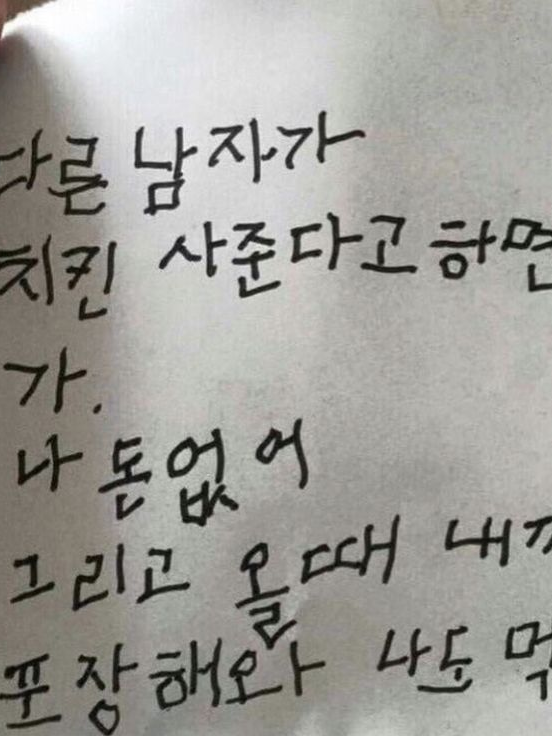 다른 남자가
치킨 사준다고 하면
가.
나 돈없어
그리고 올때
포장해와 나도